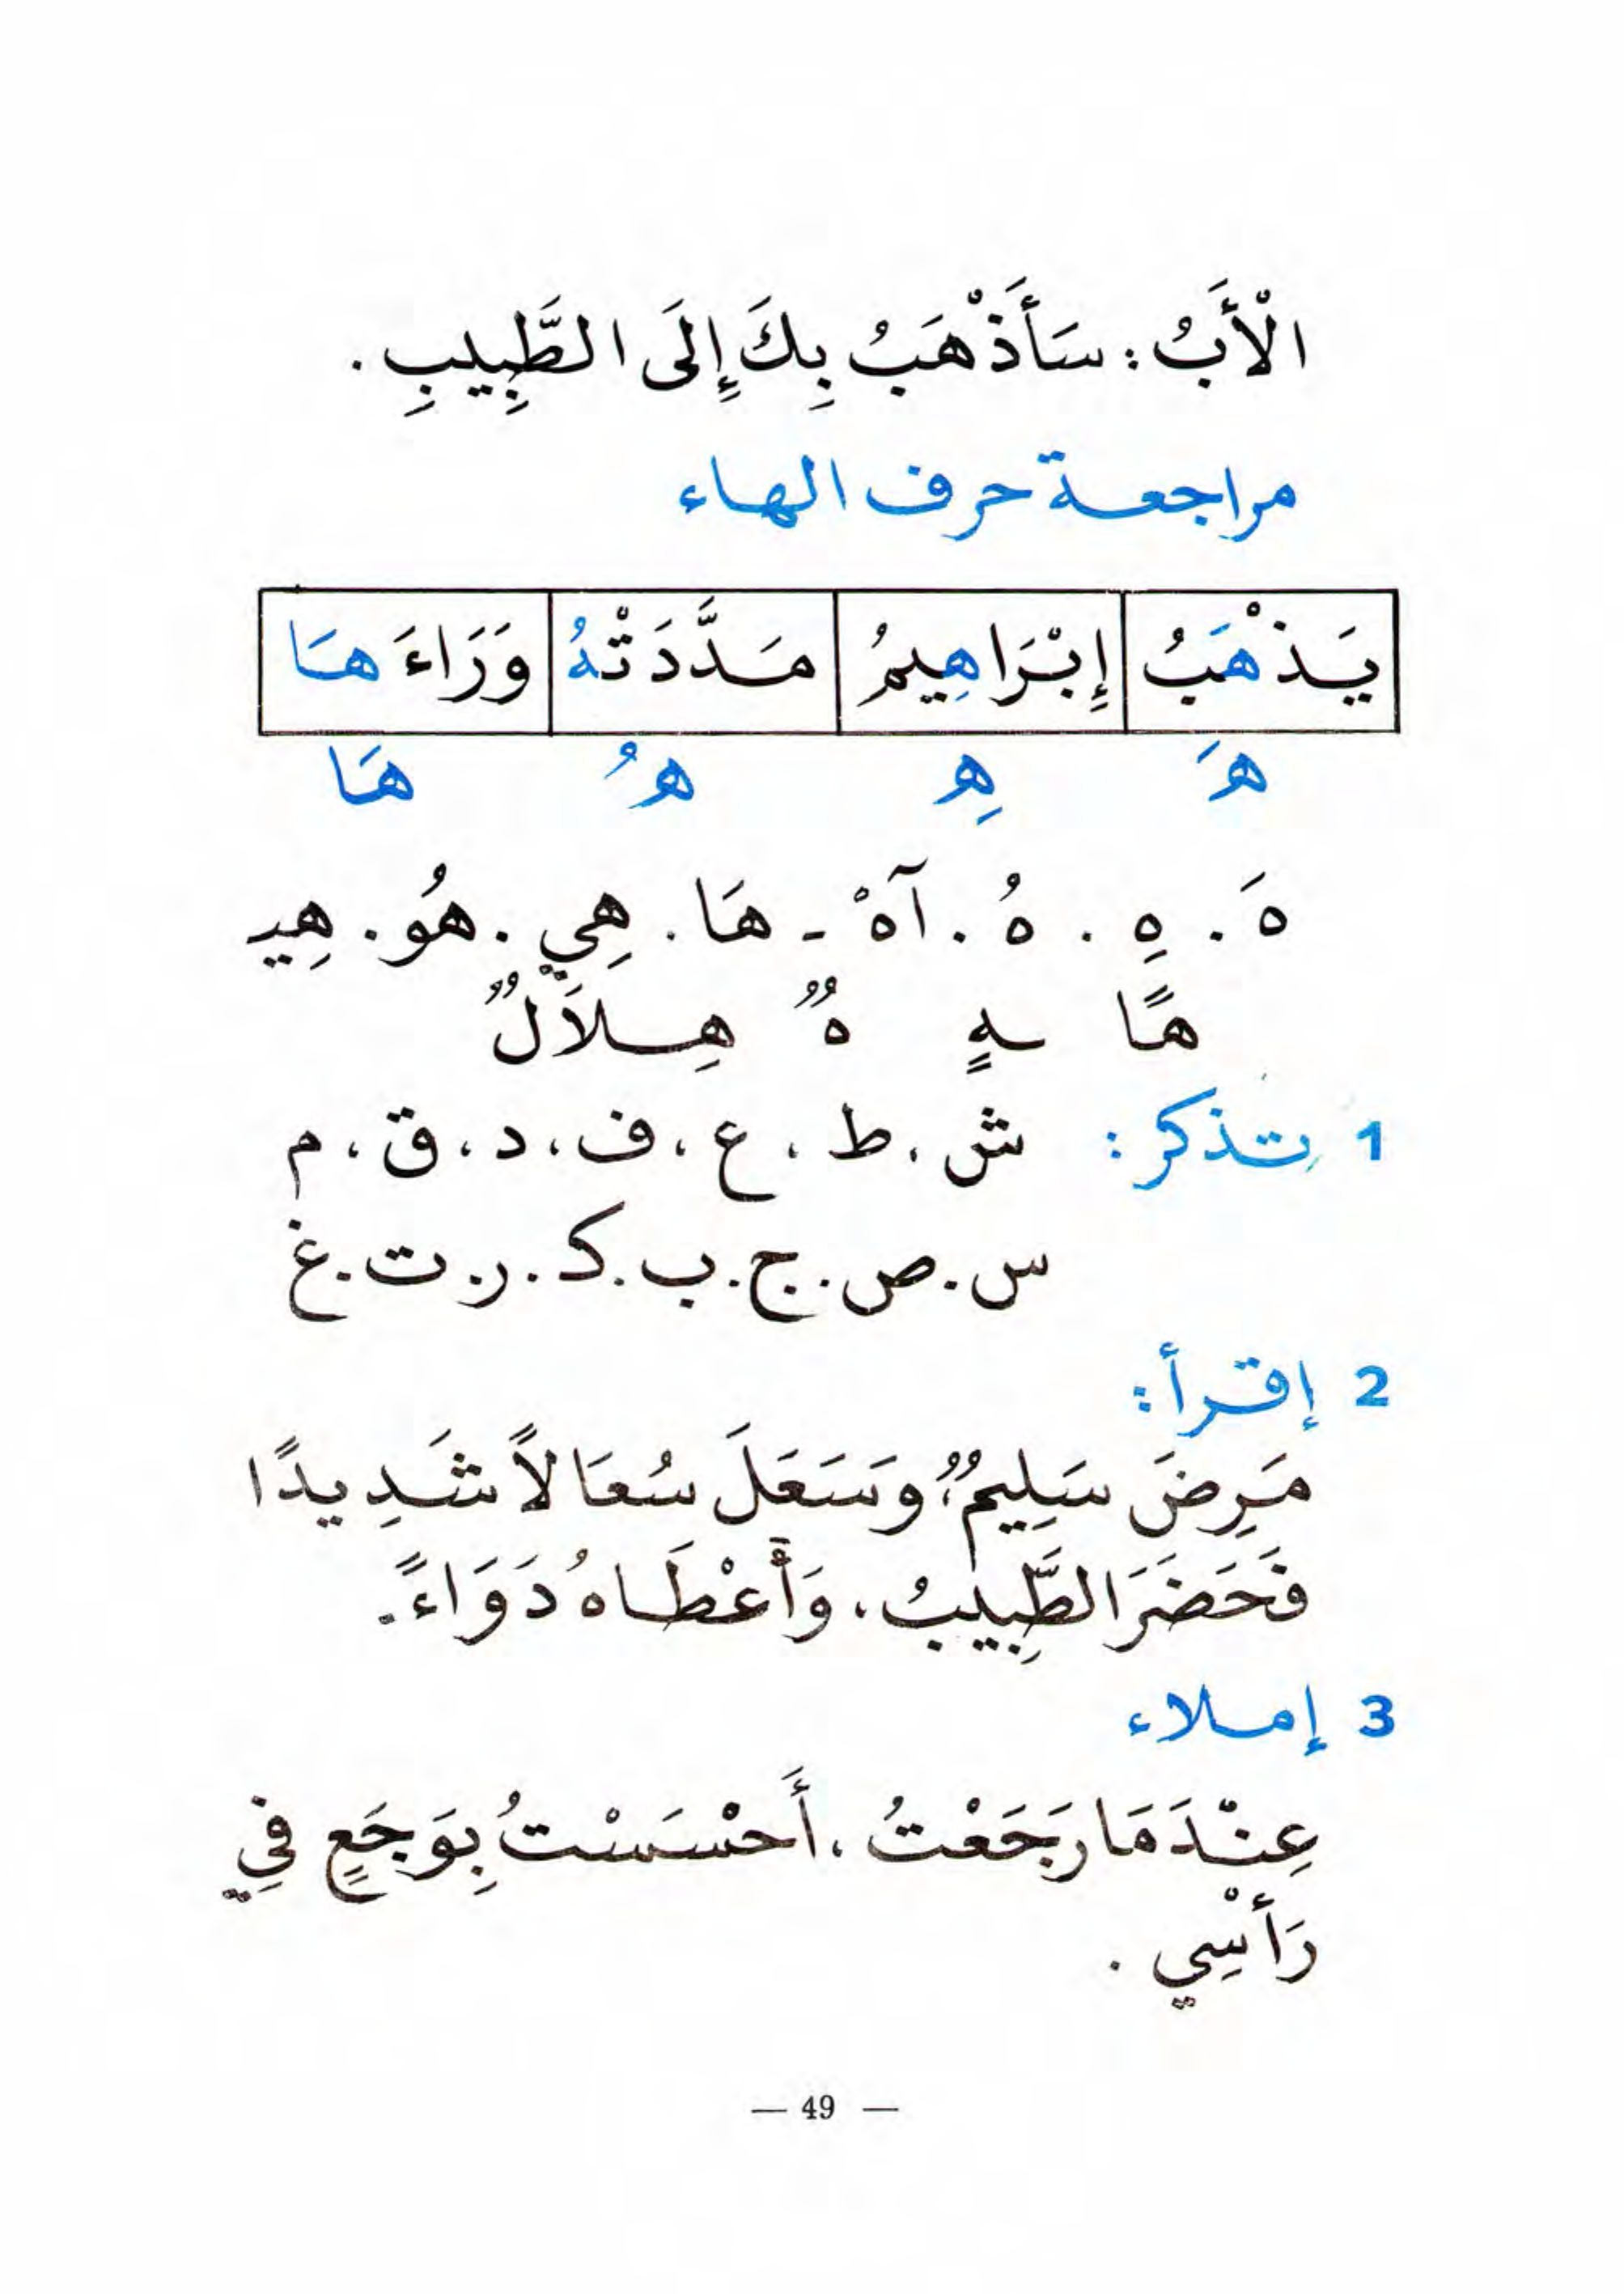 الْأَبُ : سَأَذْهَبُ بِكَ إِلَى الطَّبِيبِ .
مراجعة حرف الهاء
يَذْهَبُ إِبْرَاهِيمُ مَدَّدَتْهُ وَرَاءَهَا
هَ هِ هُ هَا
هَ . هِ . هُ . آهْ - هَا . هِي . هُو . هِيـ
هًا ـهٍ هٌ هِلاَلٌ
1 تذكر : ش . ط ، ع ، ف ، د ، ق ، م
س . ص . ج . ب . ك . ر . ت . غ
2 إقرأ :
مَرِضَ سَلِيمٌ، وَسَعَلَ سُعَالاً شَدِيدًا
فَحَضَرَ الطَّبِيبُ ، وَأَعْطَاهُ دَوَاءً .
3 إملاء
عِنْدَمَا رَجَعْتُ ، أَحْسَسْتُ بِوَجَعٍ فِي
رَأْسِي .
— 49 —